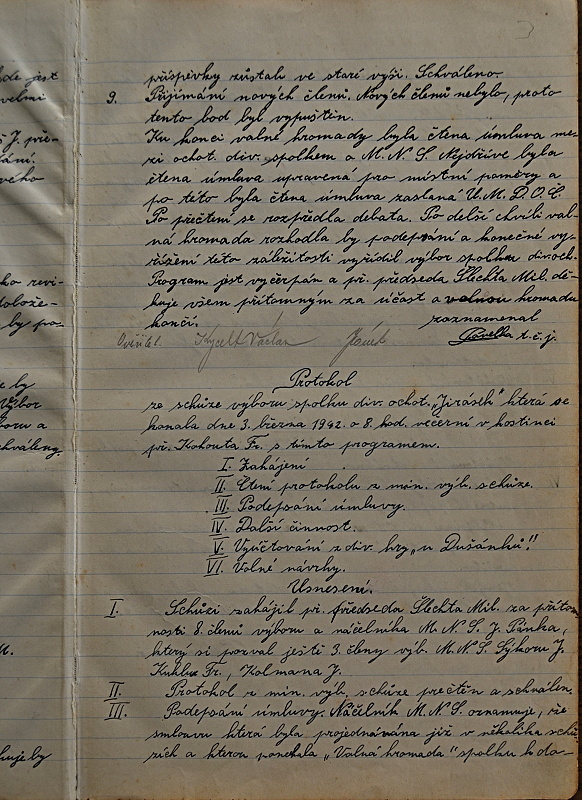 příspěvky zůstali ve staré vyši. Schváleno.
9. Přijímání nových členů. Nových členů nebylo, proto
tento bod byl vypuštěn.
Ku konci valné hromady byla čtena úmluva me-
zi ochot. div. spolkem a M. N. S. Nejdříve byla
čtena úmluva upravená pro místní poměry a
po této byla čtena úmluva zaslaná Ú. M. D. O. Č.
Po přečtení se rozpředla debata. Po delší chvíli val-
ná hromada rozhodla by podepsání a konečné vy-
řízení této záležitosti vyřídil výbor spolku div. och.
Program jest vyčerpán a př. předseda Šlechta Mil. dě-
kuje všem přítomným za účast a valnou hromadu
končí. zaznamenal
Kycelt Václav Pavelka t. č. j.
Protokol
ze schůze výboru spolku div. ochot. „Jirásek" která se
konala dne 3. března 1942 o 8. hod. večerní v hostinci
př. Kohouta Fr. s tímto programem.
I. Zahájení
II. Čtení protokolu z min. výb. schůze.
III. Podepsání úmluvy.
IV. Další činnost.
V. Vyúčtování z div. hry „u Dušánků".
VI. Volné návrhy.
Usnesení.
I. Schůzi zahájil př. předseda Šlechta Mil. za přítom-
nosti 8. členů výboru a náčelníka M. N. S. J. Pánka,
který si pozval ještě 3. členy výb. M. N. S. Sýkoru J.
Kuklu Fr., Kolmana J.
II. Protokol z min. výb. schůze přečtén a schválen.
III. Podepsání úmluvy. Náčelník M. N. S. oznamuje, že
smlouvu která byla projednávána již v několika schů-
zích a kterou ponechala „Valná hromada" spolku k do-